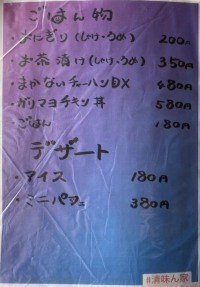 ごはん物
・おにぎり(しゃけ・うめ) 200円
・お茶漬け(しゃけ・うめ) 350円
・まかないチャーハンDX 480円
・ガリマヨチキン丼 580円
・ごはん 180円
デザート
・アイス 180円
・ミニパフェ 380円
味ん家